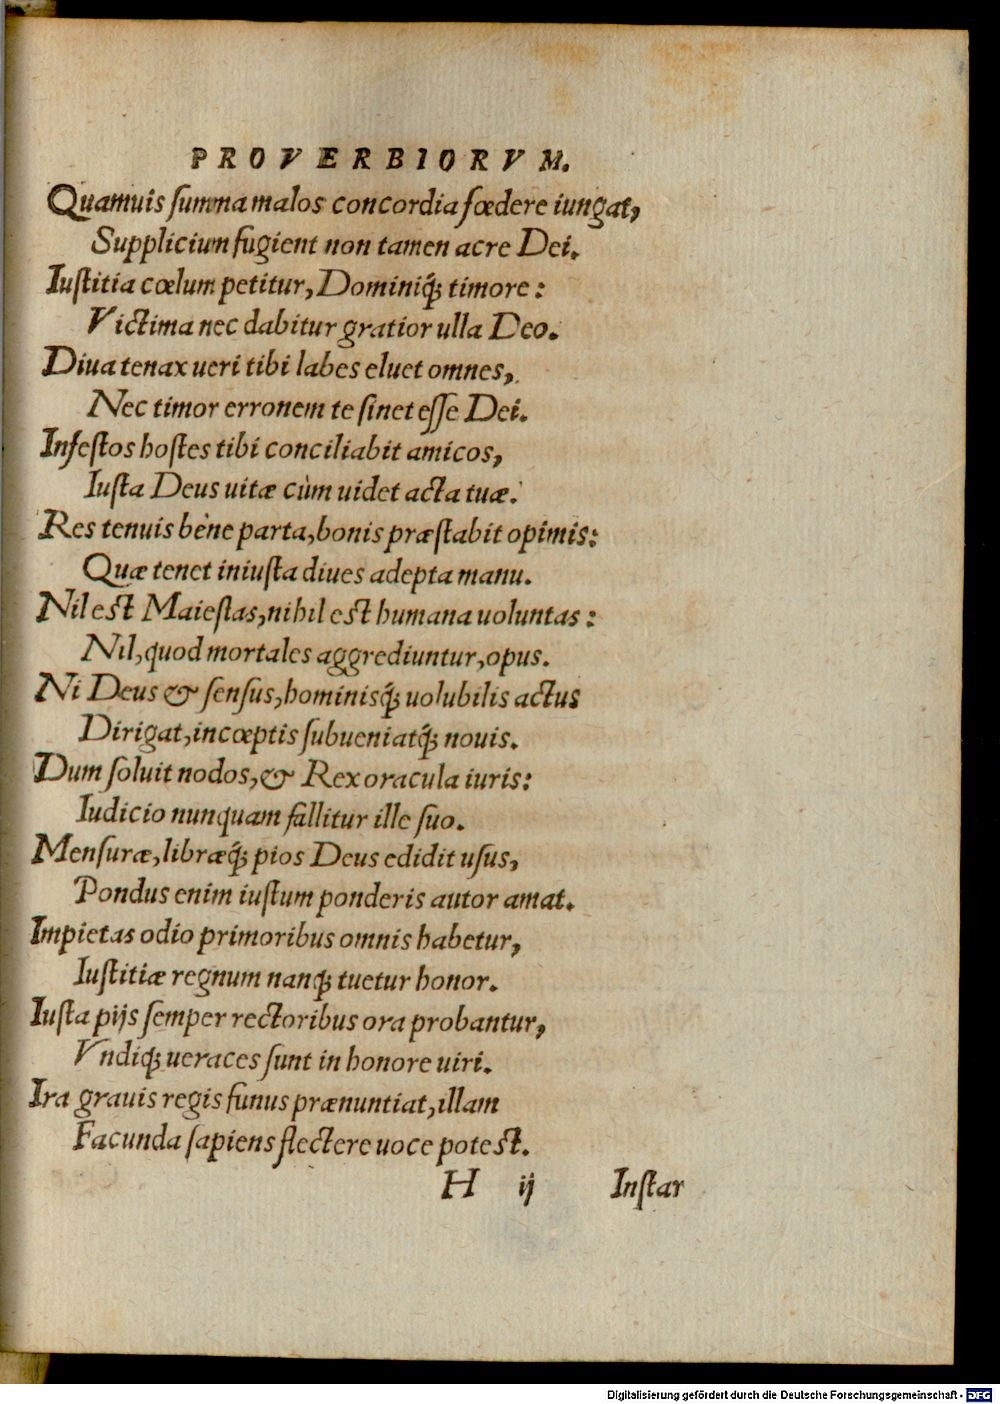 PROVERBIORVM.
Quamuis ſumma malos concordia fœdere iungat,
Supplicium fugient non tamen acre Dei.
Iuſtitia cœlum petitur, Dominiq́; timore:
Victima nec dabitur gratior ulla Deo.
Diua tenax ueri tibi labes eluet omnes,
Nec timor erronem te ſinet eſſe Dei.
Infeſtos hoſtes tibi conciliabit amicos,
Iuſta Deus uitæ cùm uidet acta tuæ.
Res tenuis bène parta, bonis præſtabit opimis:
Quæ tenet iniuſta diues adepta manu.
Nil eſt Maieſtas, nihil eſt humana uoluntas:
Nil, quod mortales aggrediuntur, opus.
Ni Deus & ſenſus, hominisq́; uolubilis actus
Dirigat, incœptis ſubueniatq́; nouis.
Dum ſoluit nodos, & Rex oracula iuris:
Iudicio nunquam fallitur ille ſuo.
Menſuræ, libræq́; pios Deus edidit uſus,
Pondus enim iuſtum ponderis autor amat.
Impietas odio primoribus omnis habetur,
Iuſtitiæ regnum nanq; tuetur honor.
Iuſta pijs ſemper rectoribus ora probantur,
Vndiq; ueraces ſunt in honore uiri.
Ira grauis regis funus prænuntiat, illam
Facunda ſapiens flectere uoce poteſt.
H ij Inſtar
Digitalisierung gefördert durch die Deutsche Forschungsgemeinschaft - DFG